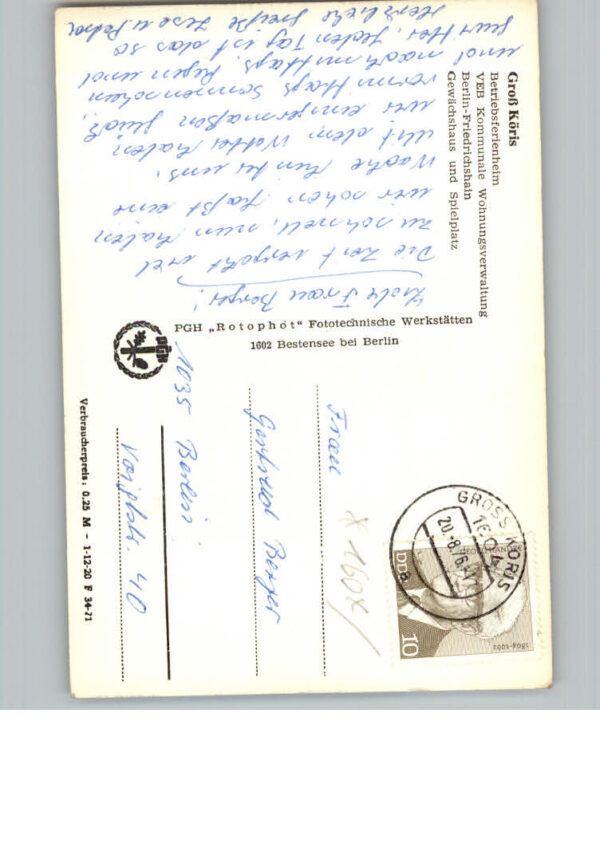 Groß Köris
Betriebsferienheim
VEB Kommunale Wohnungsverwaltung
Berlin-Friedrichshain
Gewächshaus und Spielplatz
Liebe Frau Berger!
Die Zeit vergeht viel
zu schnell, nun haben
wir schon fast eine
Woche hinter uns.
Mit dem Wetter haben
wir einigermaßen Glück,
vormittags Sonnenschein
und nachmittags Regen und
Gewitter, jeden Tag ist das so
Herzliche Grüße
PGH „Rotophot“ Fototechnische Werkstätten
1602 Bestensee bei Berlin
PGH
Verbraucherpreis: 0,25 M - 1-12-20 F 34-71
GROSS KÖRIS
1604
a
DDR
10
Frau
Gertrud Berger
1035 Berlin
Voigtstr. 40
* 160x/